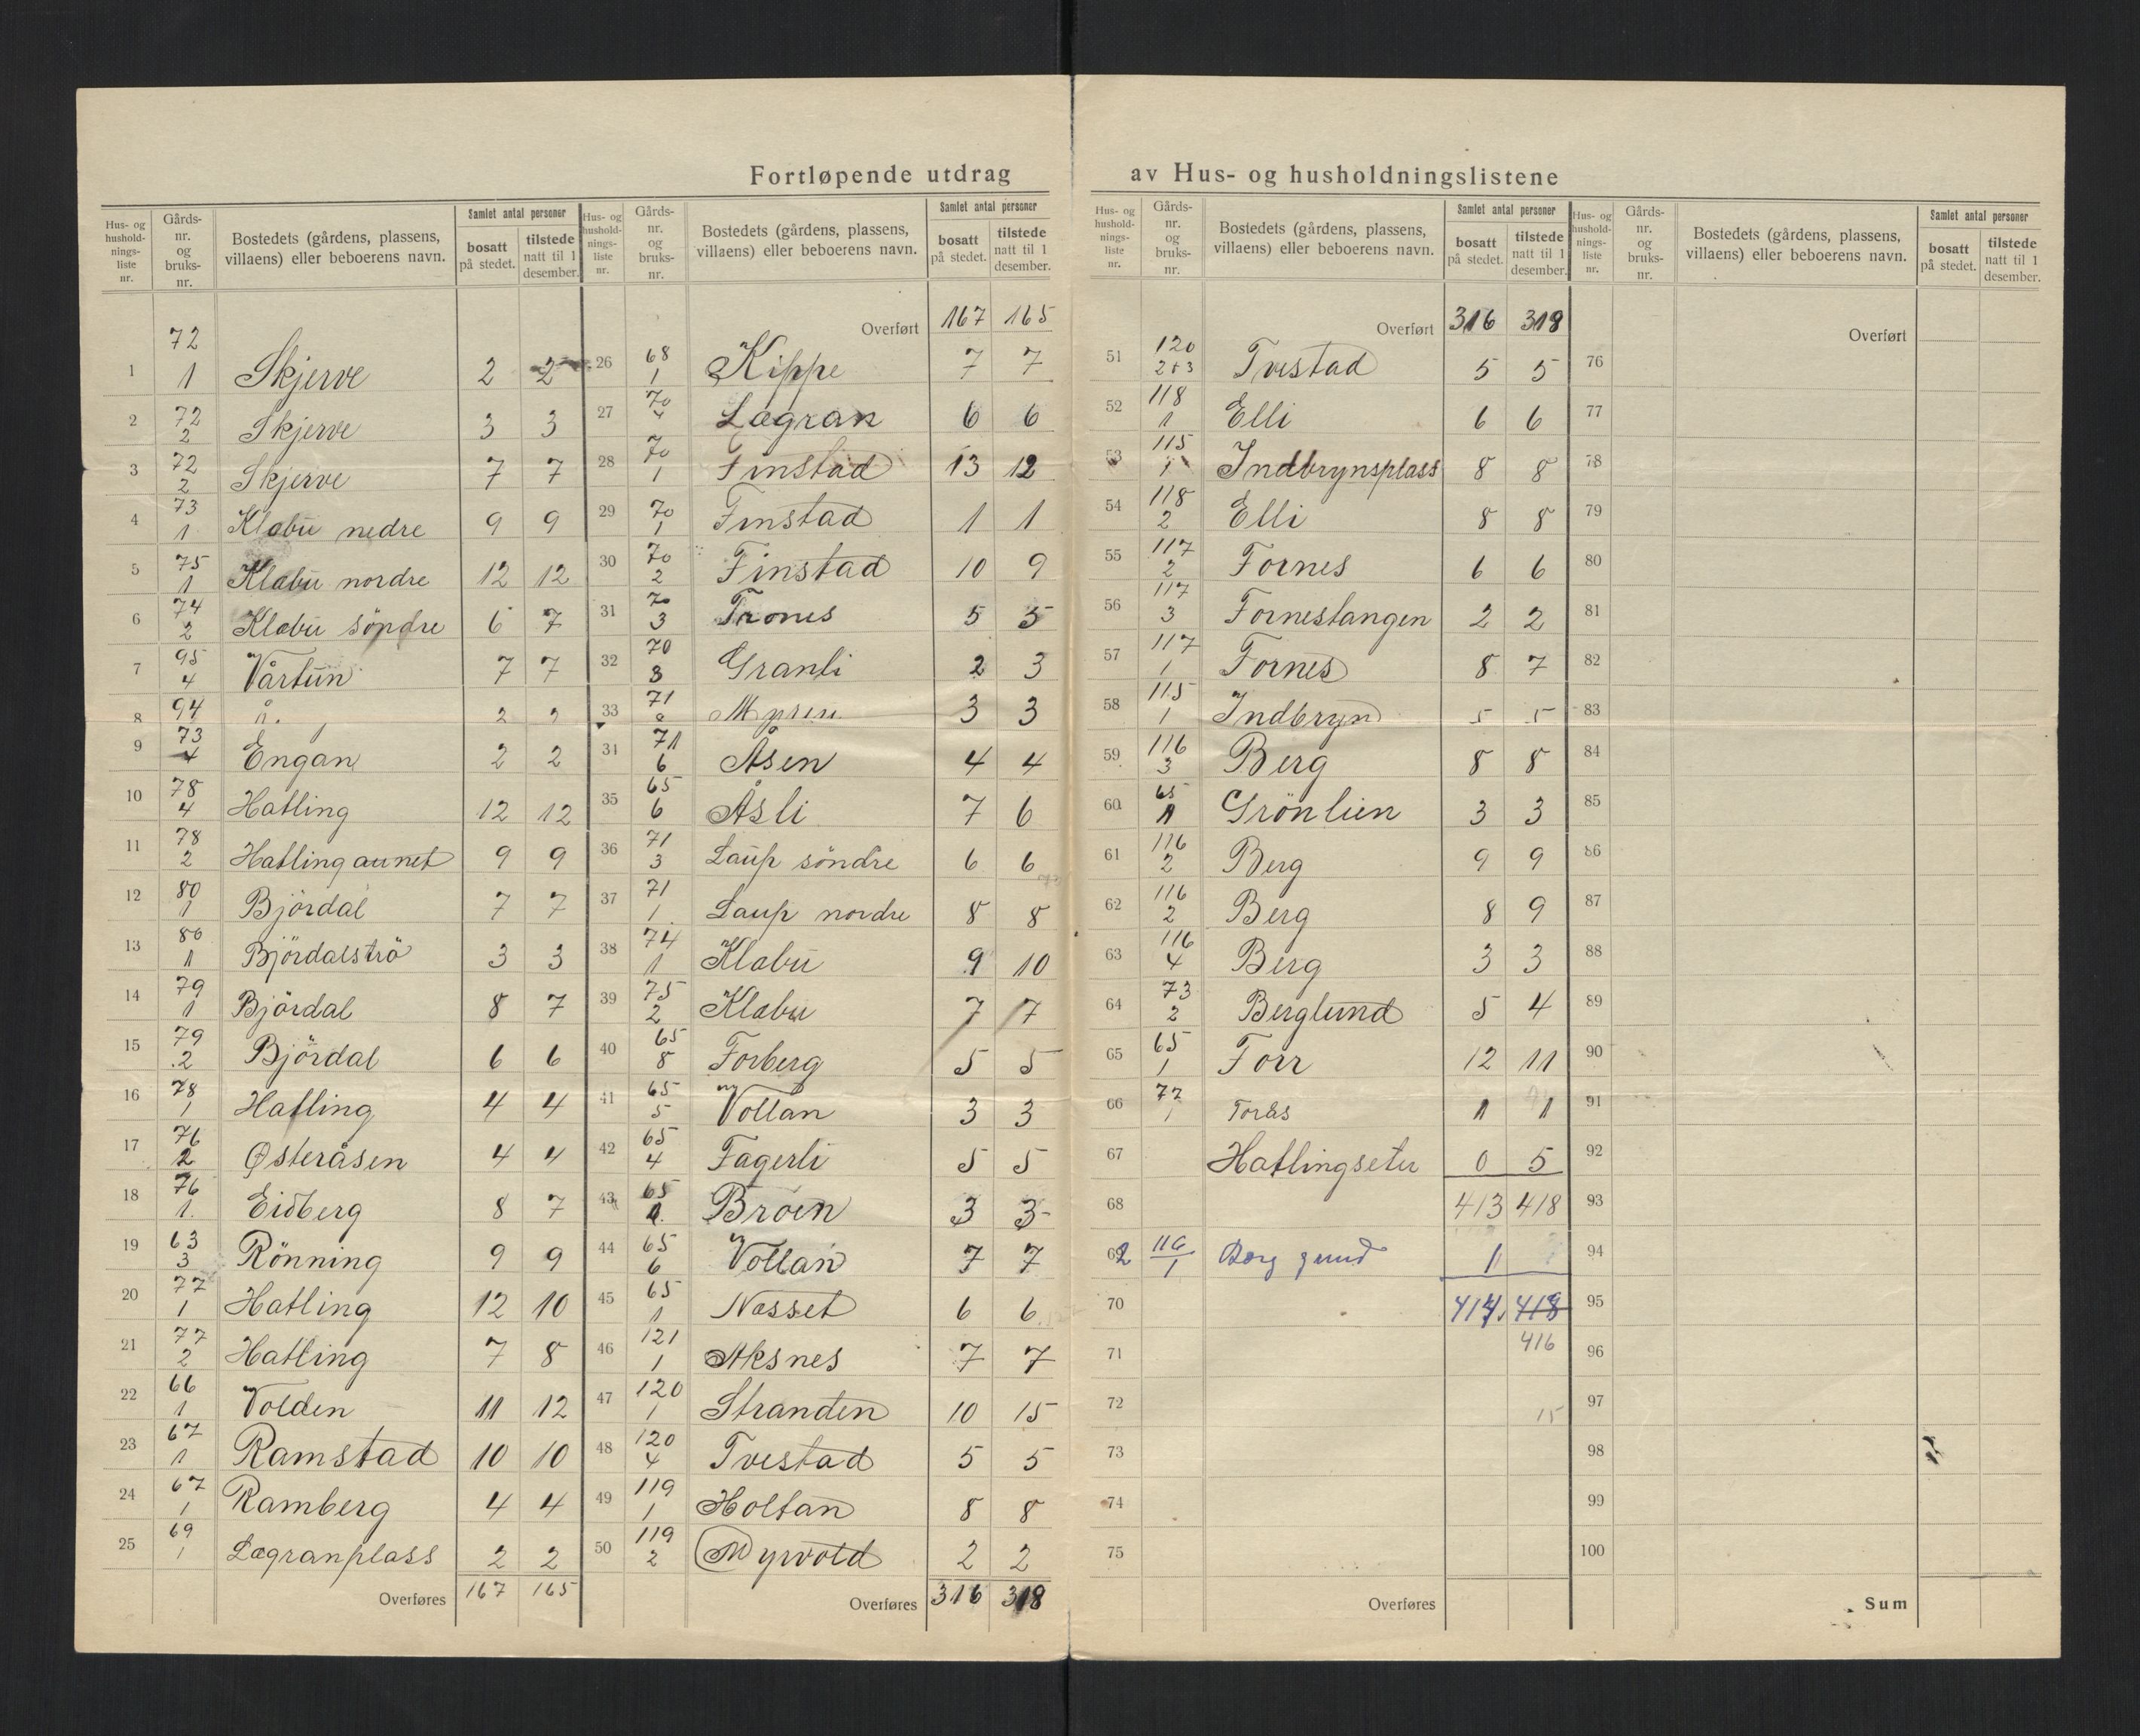 Fortløpende utdrag av Hus- og husholdningslistene
Hus- og hushold-nings-liste nr. | Gårds-nr. og bruks-nr. | Bostedets (gårdens, plassens, villaens) eller beboerens navn. | Samlet antal personer | bosatt på stedet. | tilstede natt til 1 desember.
1 72 1 Skjerve 2 2
2 72 2 Skjerve 3 3
3 72 2 Skjerve 7 7
4 73 1 Klæbu nedre 9 9
5 75 1 Klæbu nordre 12 12
6 74 2 Klæbu söndre 6 7
7 95 4 Vårtun 7 7
8 94 2 2
9 73 4 Engan 2 2
10 78 4 Hatling 12 12
11 78 2 Hatlingaunet 9 9
12 80 1 Björdal 7 7
13 80 1 Björdalströ 3 3
14 79 1 Björdal 8 7
15 79 2 Björdal 6 6
16 78 1 Hatling 4 4
17 76 2 Østeråsen 4 4
18 76 1. Eidberg 8 7
19 63 3 Rönning 9 9
20 77 1 Hatling 12 10
21 77 2 Hatling 7 8
22 66 1 Volden 11 12
23 67 1 Ramstad 10 10
24 67 1 Ramberg 4 4
25 69 1 Lægranplass 2 2
Overføres 167 165
Hus- og hushold-nings-liste nr. | Gårds-nr. og bruks-nr. | Bostedets (gårdens, plassens, villaens) eller beboerens navn. | Samlet antal personer | bosatt på stedet. | tilstede natt til 1 desember.
Overført 167 165
26 68 1 Kippe 7 7
27 70 4 Lægran 6 6
28 70 1 Finstad 13 12
29 70 1 Finstad 1 1
30 70 2 Finstad 10 9
31 70 3 Trones 5 5
32 70 3 Granli 2 3
33 71 Myren 3 3
34 71 6 Åsen 4 4
35 65 6 Åsli 7 6
36 71 3 Laup söndre 6 6
37 71 1. Laup nordre 8 8
38 74 1 Klæbu 9 10
39 75 2 Klæbu 7 7
40 65 8 Forberg 5 5
41 65 5 Vollan 3 3
42 65 4 Fagerli 5 5
43 65 1. Bröen 3 3
44 65 6 Vollan 7 7
45 65 1 Næsset 6 6
46 121 1 Aksnes 7 7
47 120 1 Stranden 10 15
48 120 4 Tvestad 5 5
49 119 1 Holtan 8 8
50 119 2 Myrvold 2 2
Overføres 316 318
Hus- og hushold-nings-liste nr. | Gårds-nr. og bruks-nr. | Bostedets (gårdens, plassens, villaens) eller beboerens navn. | Samlet antal personer | bosatt på stedet. | tilstede natt til 1 desember.
Overført 316 318
51 120 2+3 Tvestad 5 5
52 118 1 Elli 6 6
53 115 1 Indbrynsplass 8 8
54 118 2 Elli 8 8
55 117 2 Fornes 6 6
56 117 3 Fornestangen 2 2
57 117 1 Fornes 8 7
58 115 1 Indbryn 5 5
59 116 3 Berg 8 8
60 65 1 Grönlien 3 3
61 116 2 Berg 9 9
62 116 2 Berg 8 9
63 116 4 Berg 3 3
64 73 2 Berglund 5 4
65 65 1 Forr 12 11
66 77 1 Torås 1 1
67 Hatlingseter 0 5
68 413 418
69 116 1 Berg 1
70 414 418
71 416
72 15
73
74
75
Overføres
Hus- og hushold-nings-liste nr. | Gårds-nr. og bruks-nr. | Bostedets (gårdens, plassens, villaens) eller beboerens navn. | Samlet antal personer | bosatt på stedet. | tilstede natt til 1 desember.
Overført
76
77
78
79
80
81
82
83
84
85
86
87
88
89
90
91
92
93
94
95
96
97
98
99
100
Sum